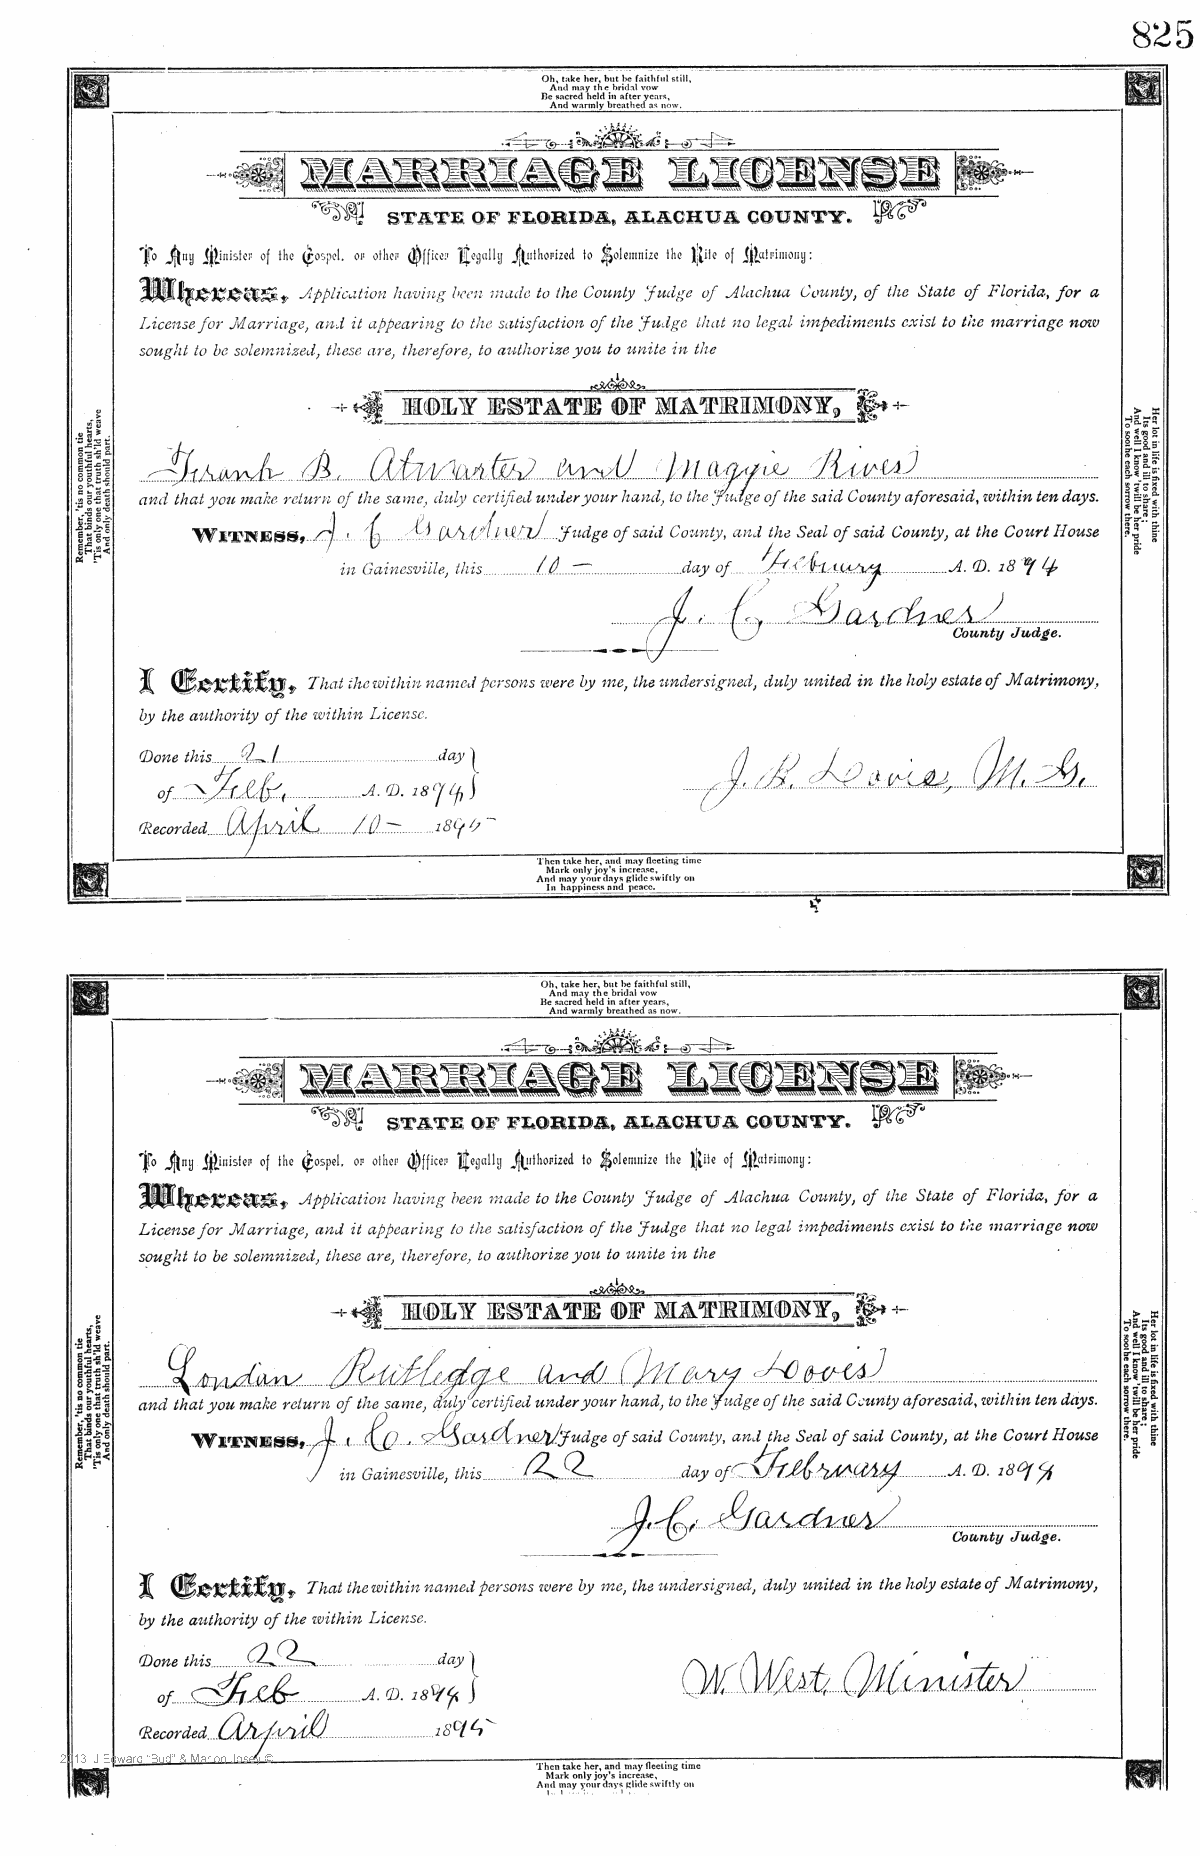 825
Oh, take her, but be faithful still,
And may the bridal vow
Be sacred held in after years,
And warmly breathed as now.
MARRIAGE LICENSE
STATE OF FLORIDA, ALACHUA COUNTY.
To Any Minister of the Gospel, or other Officer Legally Authorized to Solemnize the Rite of Matrimony:
Whereas, Application having been made to the County Judge of Alachua County, of the State of Florida, for a
License for Marriage, and it appearing to the satisfaction of the Judge that no legal impediments exist to the marriage now
sought to be solemnized, these are, therefore, to authorize you to unite in the
HOLY ESTATE OF MATRIMONY,
Frank B. Atwarter and Maggie Rives
and that you make return of the same, duly certified under your hand, to the Judge of the said County aforesaid, within ten days.
WITNESS, J. C Gardner Judge of said County, and the Seal of said County, at the Court House
in Gainesville, this 10 - day of February A. D. 1894
J. C. Gardner
County Judge.
I Certify, That the within named persons were by me, the undersigned, duly united in the holy estate of Matrimony,
by the authority of the within License.
Done this 21 day
of Feb. A. D. 1894
J. B. Davis, M. G.
Recorded April 10 - 1895
Remember, 'tis no common tie
That binds our youthful hearts,
'Tis only one that truth sh'ld weave
And only death should part.
Her lot in life is fixed with thine
Its good and ill to share;
And well I know 'twill be her pride
To soothe each sorrow there.
Then take her, and may fleeting time
Mark only joy's increase,
And may your days glide swiftly on
In happiness and peace.
Oh, take her, but be faithful still,
And may the bridal vow
Be sacred held in after years,
And warmly breathed as now.
MARRIAGE LICENSE
STATE OF FLORIDA, ALACHUA COUNTY.
To Any Minister of the Gospel, or other Officer Legally Authorized to Solemnize the Rite of Matrimony:
Whereas, Application having been made to the County Judge of Alachua County, of the State of Florida, for a
License for Marriage, and it appearing to the satisfaction of the Judge that no legal impediments exist to the marriage now
sought to be solemnized, these are, therefore, to authorize you to unite in the
HOLY ESTATE OF MATRIMONY,
London Rutledge and Mary Davis
and that you make return of the same, duly certified under your hand, to the Judge of the said County aforesaid, within ten days.
WITNESS, J. C. Gardner Judge of said County, and the Seal of said County, at the Court House
in Gainesville, this 22 day of February A. D. 1894
J. C. Gardner
County Judge.
I Certify, That the within named persons were by me, the undersigned, duly united in the holy estate of Matrimony,
by the authority of the within License.
Done this 22 day
of Feb A. D. 1894
W. West, Minister
Recorded Arpril 1895
Remember, 'tis no common tie
That binds our youthful hearts,
'Tis only one that truth sh'ld weave
And only death should part.
Her lot in life is fixed with thine
Its good and ill to share;
And well I know 'twill be her pride
To soothe each sorrow there.
2013 J Edward "Bud" & Marion Josey ©
Then take her, and may fleeting time
Mark only joy's increase,
And may your days glide swiftly on